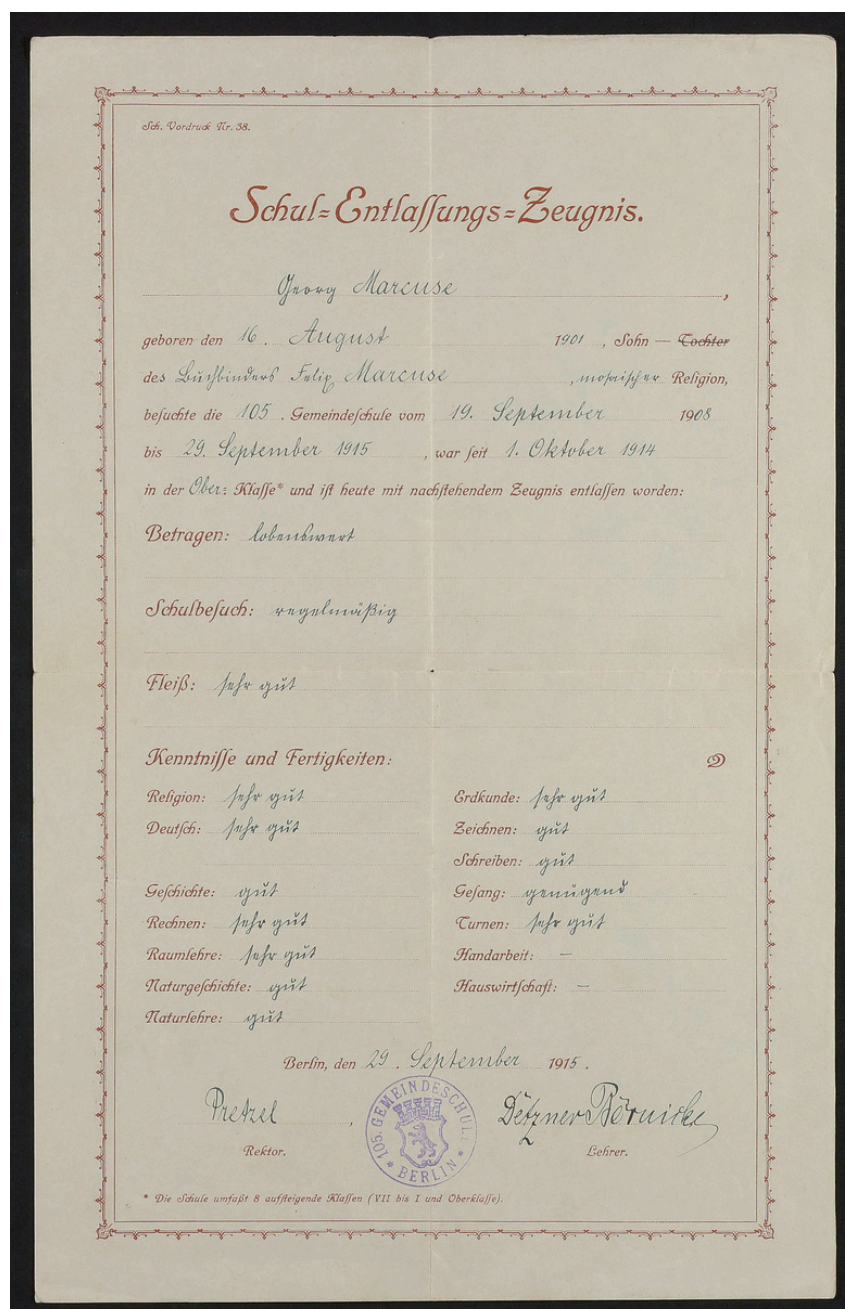 Sch. Vordruck Nr. 38.
Schul=Entlassungs=Zeugnis.
Georg Marcuse,
geboren den 16. August 1901, Sohn — Tochter
des Buchbinders Felix Marcuse, mosaischer Religion,
besuchte die 105. Gemeindeschule vom 19. September 1908
bis 29. September 1915, war seit 1. Oktober 1914
in der Ober= Klasse* und ist heute mit nachstehendem Zeugnis entlassen worden:
Betragen: lobenswert
Schulbesuch: regelmäßig
Fleiß: sehr gut
Kenntnisse und Fertigkeiten:
Religion: sehr gut
Deutsch: sehr gut
Geschichte: gut
Rechnen: sehr gut
Raumlehre: sehr gut
Naturgeschichte: gut
Naturlehre: gut
Erdkunde: sehr gut
Zeichnen: gut
Schreiben: gut
Gesang: genügend
Turnen: sehr gut
Handarbeit: –
Hauswirtschaft: –
Berlin, den 29. September 1915.
Pretzel,
Rektor.
105. GEMEINDESCHULE
* BERLIN *
Börnicke
Lehrer.
* Die Schule umfaßt 8 aufsteigende Klassen (VII bis I und Oberklasse).